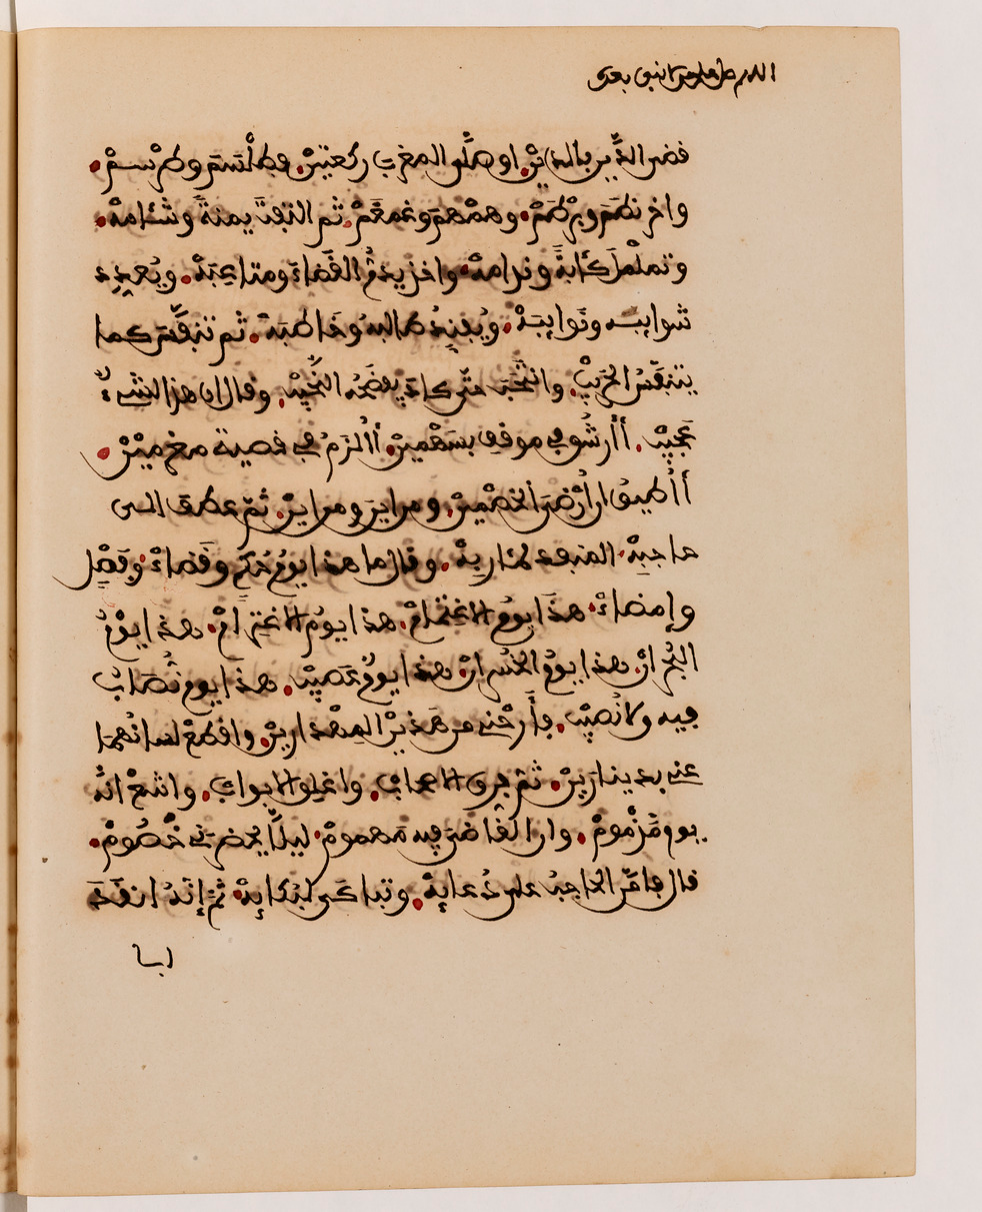 اللهم صل على من لا نبي بعده
قضى الدَّين بالدَّيْنْ. او صلَّى المغرب ركعتيْنْ. فطلْسَمَ وطرْسمْ.
واخرنطَمَ وبرْطَمْ. وهمْهمَ وغمغَمْ. ثم التفتَ يمنةً وشَئامهْ.
وتململَ كئابةً وندامهْ. واخذ يذمُّ القَضاءَ ومتاعبَهْ. ويُعدِد
شوايبه ونَوايبَهْ. ويُفنِدُ طالبهُ وخَاطبَهْ. ثم تنفَّسَ كما
يتنفّسُ الحَرِيبْ. وانتَحَبَ حتّى كادَ يفضَحُه النَّحِيبْ. وقال ان هذا لشَيْءٌ
عَجيبْ. أَأُرشَقُ في موقفٍ بسَهْميْنْ. أَأُلزَمُ في قضية مغرميْنْ.
أَأُطيقُ ان أُرْضيَ الخصْميْنْ. ومن اينَ ومن اينْ. ثمّ عطف الى
حاجبِهْ. المنفذ لمئاربِهْ. وقال ما هذا يومُ حُكمٍ وقَضاءْ. وفَصْلٍ
وإمضاءْ. هذَا يومُ الاغتمامْ. هذا يومُ الاغترَامْ. هذا يوْمُ
البُحرانْ. هذا يومُ الخسرانْ. هذا يومٌ عَصِيبْ. هذَا يوم نُصَابُ
فيه ولا نُصيبْ. فأَرِحْني من هَذيْنِ المِهْذارينْ. واقطعْ لسانَهُما
عني بدينارَينْ. ثم فرق الاصحابْ. واغلق الابوابْ. واشعْ انهُ
يوم مَذْمومْ. وان القاضيَ فيه مَهمومْ. ليلاَّ يحضرَني خُصُومْ.
قال فامَّن الحاجبُ على دُعايهْ. وتباكَى لبُكايِهْ. ثمَّ إنَّهُ انقَدَ
ابا